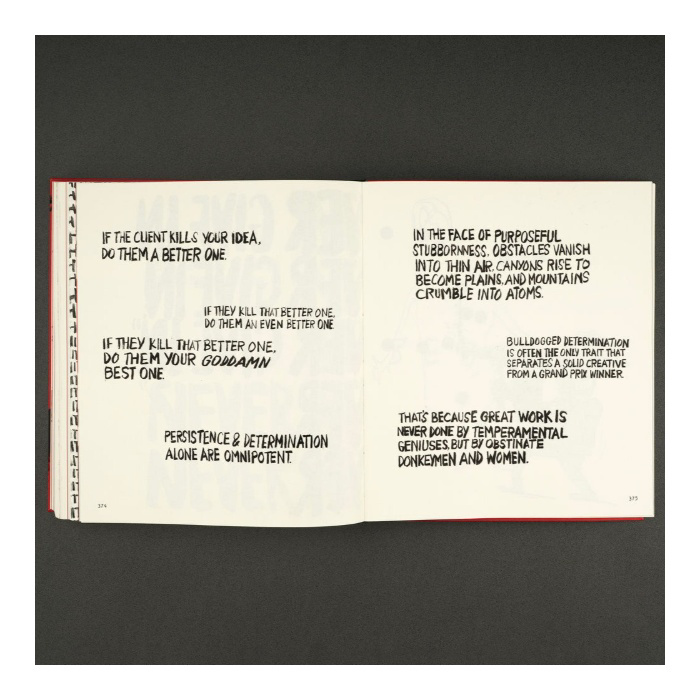 IF THE CLIENT KILLS YOUR IDEA,
DO THEM A BETTER ONE.
IF THEY KILL THAT BETTER ONE,
DO THEM AN EVEN BETTER ONE
IF THEY KILL THAT BETTER ONE,
DO THEM YOUR GODDAMN
BEST ONE.
PERSISTENCE & DETERMINATION
ALONE ARE OMNIPOTENT.
374
IN THE FACE OF PURPOSEFUL
STUBBORNNESS, OBSTACLES VANISH
INTO THIN AIR, CANYONS RISE TO
BECOME PLAINS, AND MOUNTAINS
CRUMBLE INTO ATOMS.
BULLDOGGED DETERMINATION
IS OFTEN THE ONLY TRAIT THAT
SEPARATES A SOLID CREATIVE
FROM A GRAND PRIX WINNER.
THAT'S BECAUSE GREAT WORK IS
NEVER DONE BY TEMPERAMENTAL
GENIUSES, BUT BY OBSTINATE
DONKEYMEN AND WOMEN.
375